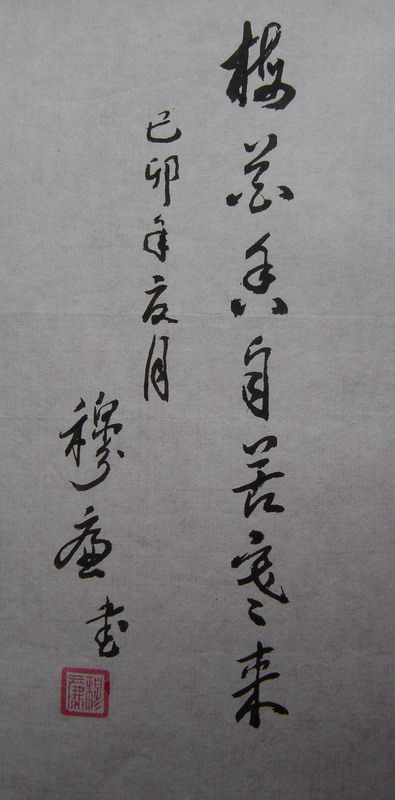 梅花香自苦寒来
己卯年夏月
穆廉书